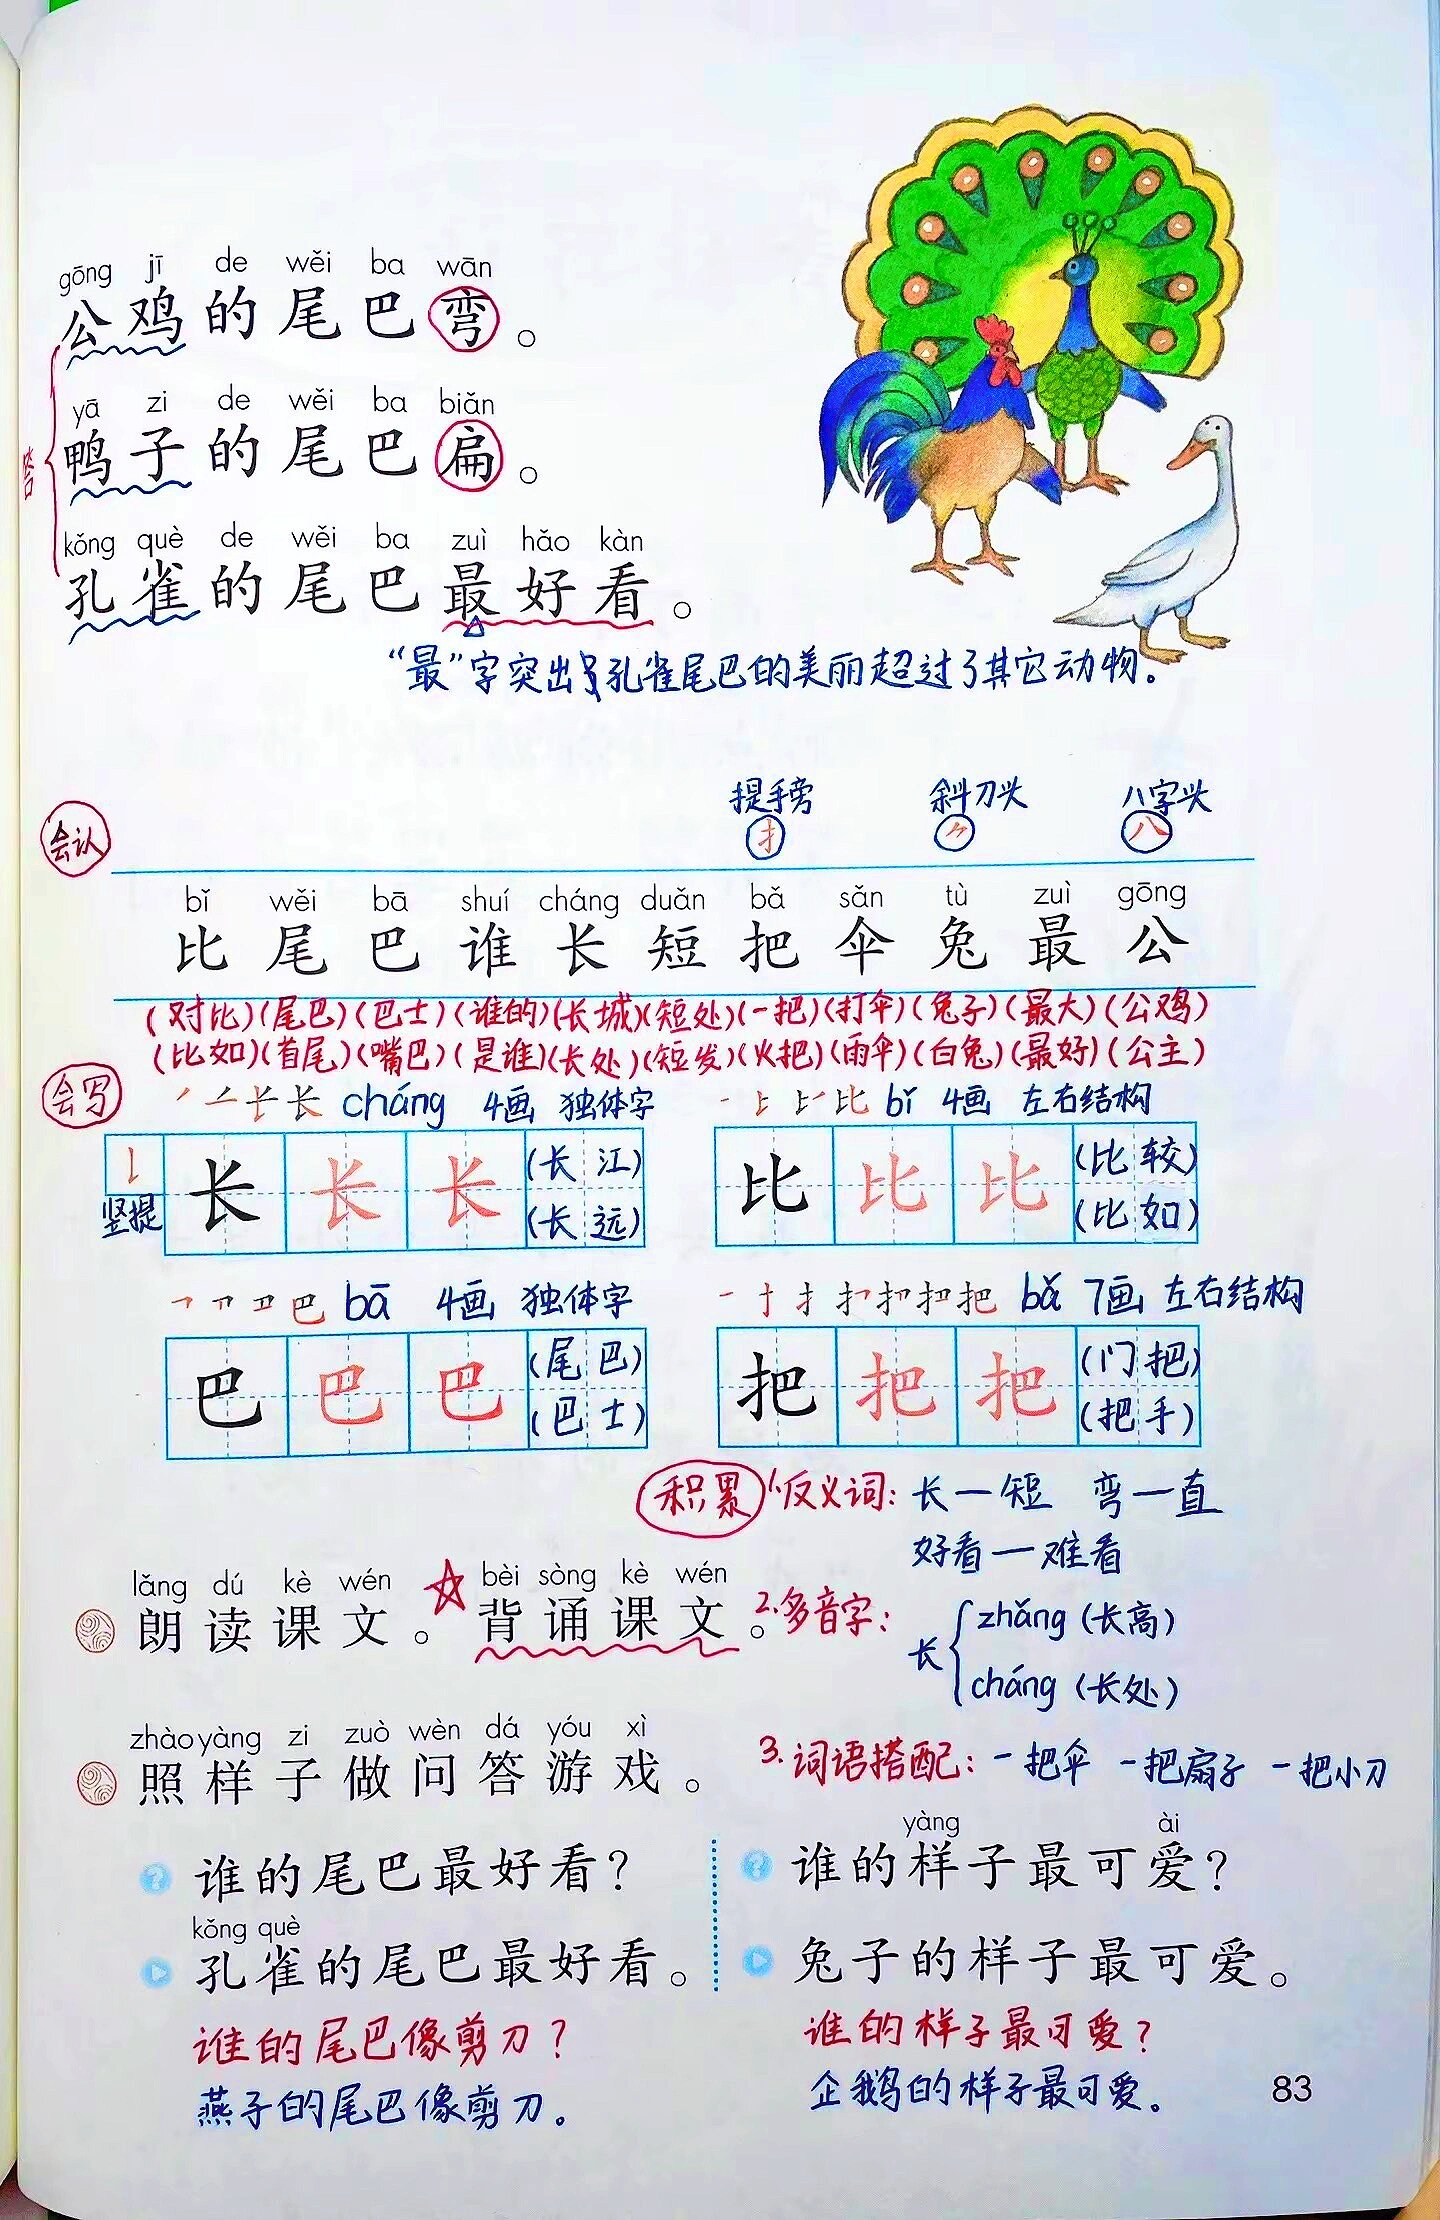 gōng jī de wěi ba wān
公鸡的尾巴弯。
yā zi de wěi ba biǎn
鸭子的尾巴扁。
答
kǒng què de wěi ba zuì hǎo kàn
孔雀的尾巴最好看。
“最”字突出孔雀尾巴的美丽超过了其它动物。
提手旁 斜刀头 八字头
会认 扌 ⺈ 八
bǐ wěi bā shuí cháng duǎn bǎ sǎn tù zuì gōng
比 尾 巴 谁 长 短 把 伞 兔 最 公
(对比)(尾巴)(巴士)(谁的)(长城)(短处)(一把)(打伞)(兔子)(最大)(公鸡)
(比如)(首尾)(嘴巴)(是谁)(长处)(短发)(火把)(雨伞)(白兔)(最好)(公主)
会写
长 cháng 4画 独体字 比 bǐ 4画 左右结构
长 长 长 (长江) 比 比 比 (比较)
竖提 (长远) (比如)
巴 bā 4画 独体字 把 bǎ 7画 左右结构
巴 巴 巴 (尾巴) 把 把 把 (门把)
(巴士) (把手)
积累 1.反义词：长—短 弯—直
好看—难看
lǎng dú kè wén bèi sòng kè wén
朗读课文。背诵课文。
2.多音字：
长 zhǎng (长高)
cháng (长处)
zhào yàng zi zuò wèn dá yóu xì
照样子做问答游戏。
3.词语搭配：一把伞 一把扇子 一把小刀
谁的尾巴最好看？
kǒng què
孔雀的尾巴最好看。
谁的尾巴像剪刀？
燕子的尾巴像剪刀。
yàng ài
谁的样子最可爱？
兔子的样子最可爱。
谁的样子最可爱？
企鹅的样子最可爱。
83